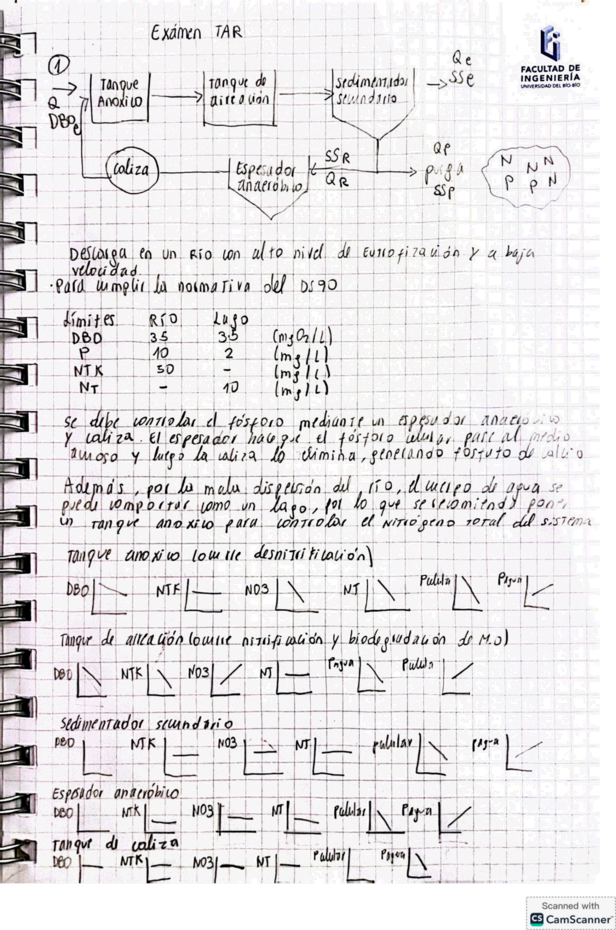 Exámen TAR
FACULTAD DE
INGENIERÍA
UNIVERSIDAD DEL BÍO-BÍO
1
Q
DBOe
Tanque
Anoxico
Tanque de
aireación
sedimentador
secundario
Qe
SSe
caliza
Espesador
anaeróbico
SSR
QR
QP
purga
SSP
N N N
N N
P P
Descarga en un Río con alto nivel de Eutrofización y a baja
velocidad.
·Para cumplir la normativa del DS90
Límites RÍO Lago
DBO 35 35 (mgO2/L)
P 10 2 (mg/L)
NTK 50 - (mg/L)
NT - 10 (mg/L)
se debe controlar el fósforo mediante un espesador anaeróbico
y caliza. El espesador hace que el fósforo celular pase al medio
acuoso y luego la caliza lo elimina, generando fosfato de calcio
Además, por la mala dispersión del río, el cuerpo de agua se
puede comportar como un lago, por lo que se recomienda poner
un Tanque anoxico para controlar el Nitrógeno Total del sistema
Tanque anoxico (ocurre desnitrificación)
DBO NTK NO3 NT Pcelula Pagua
Tanque de aireación (ocurre nitrificación y biodegradación de M.O)
DBO NTK NO3 NT Pagua Pcelula
Sedimentador secundario
DBO NTK NO3 NT Pcelular Pagua
Espesador anaeróbico
DBO NTK NO3 NT Pcelular Pagua
Tanque de caliza
DBO NTK NO3 NT Pcelular Pagua
Scanned with
CS CamScanner